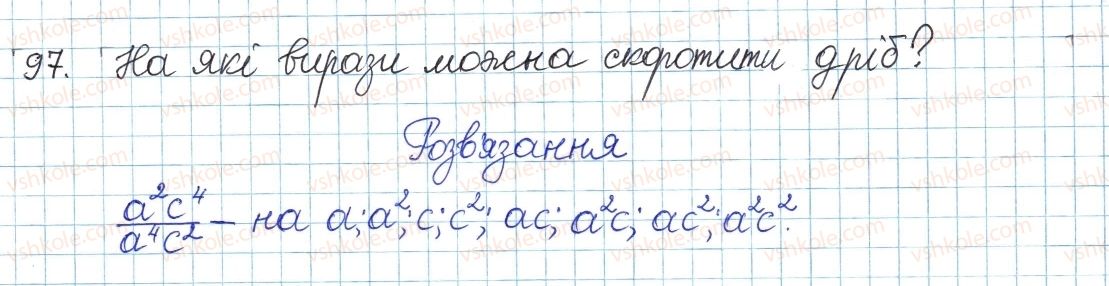 97. На які вирази можна скоротити дріб?
Розв'язання
a²c⁴/a⁴c² — на a; a²; c; c²; ac; a²c; ac²; a²c².